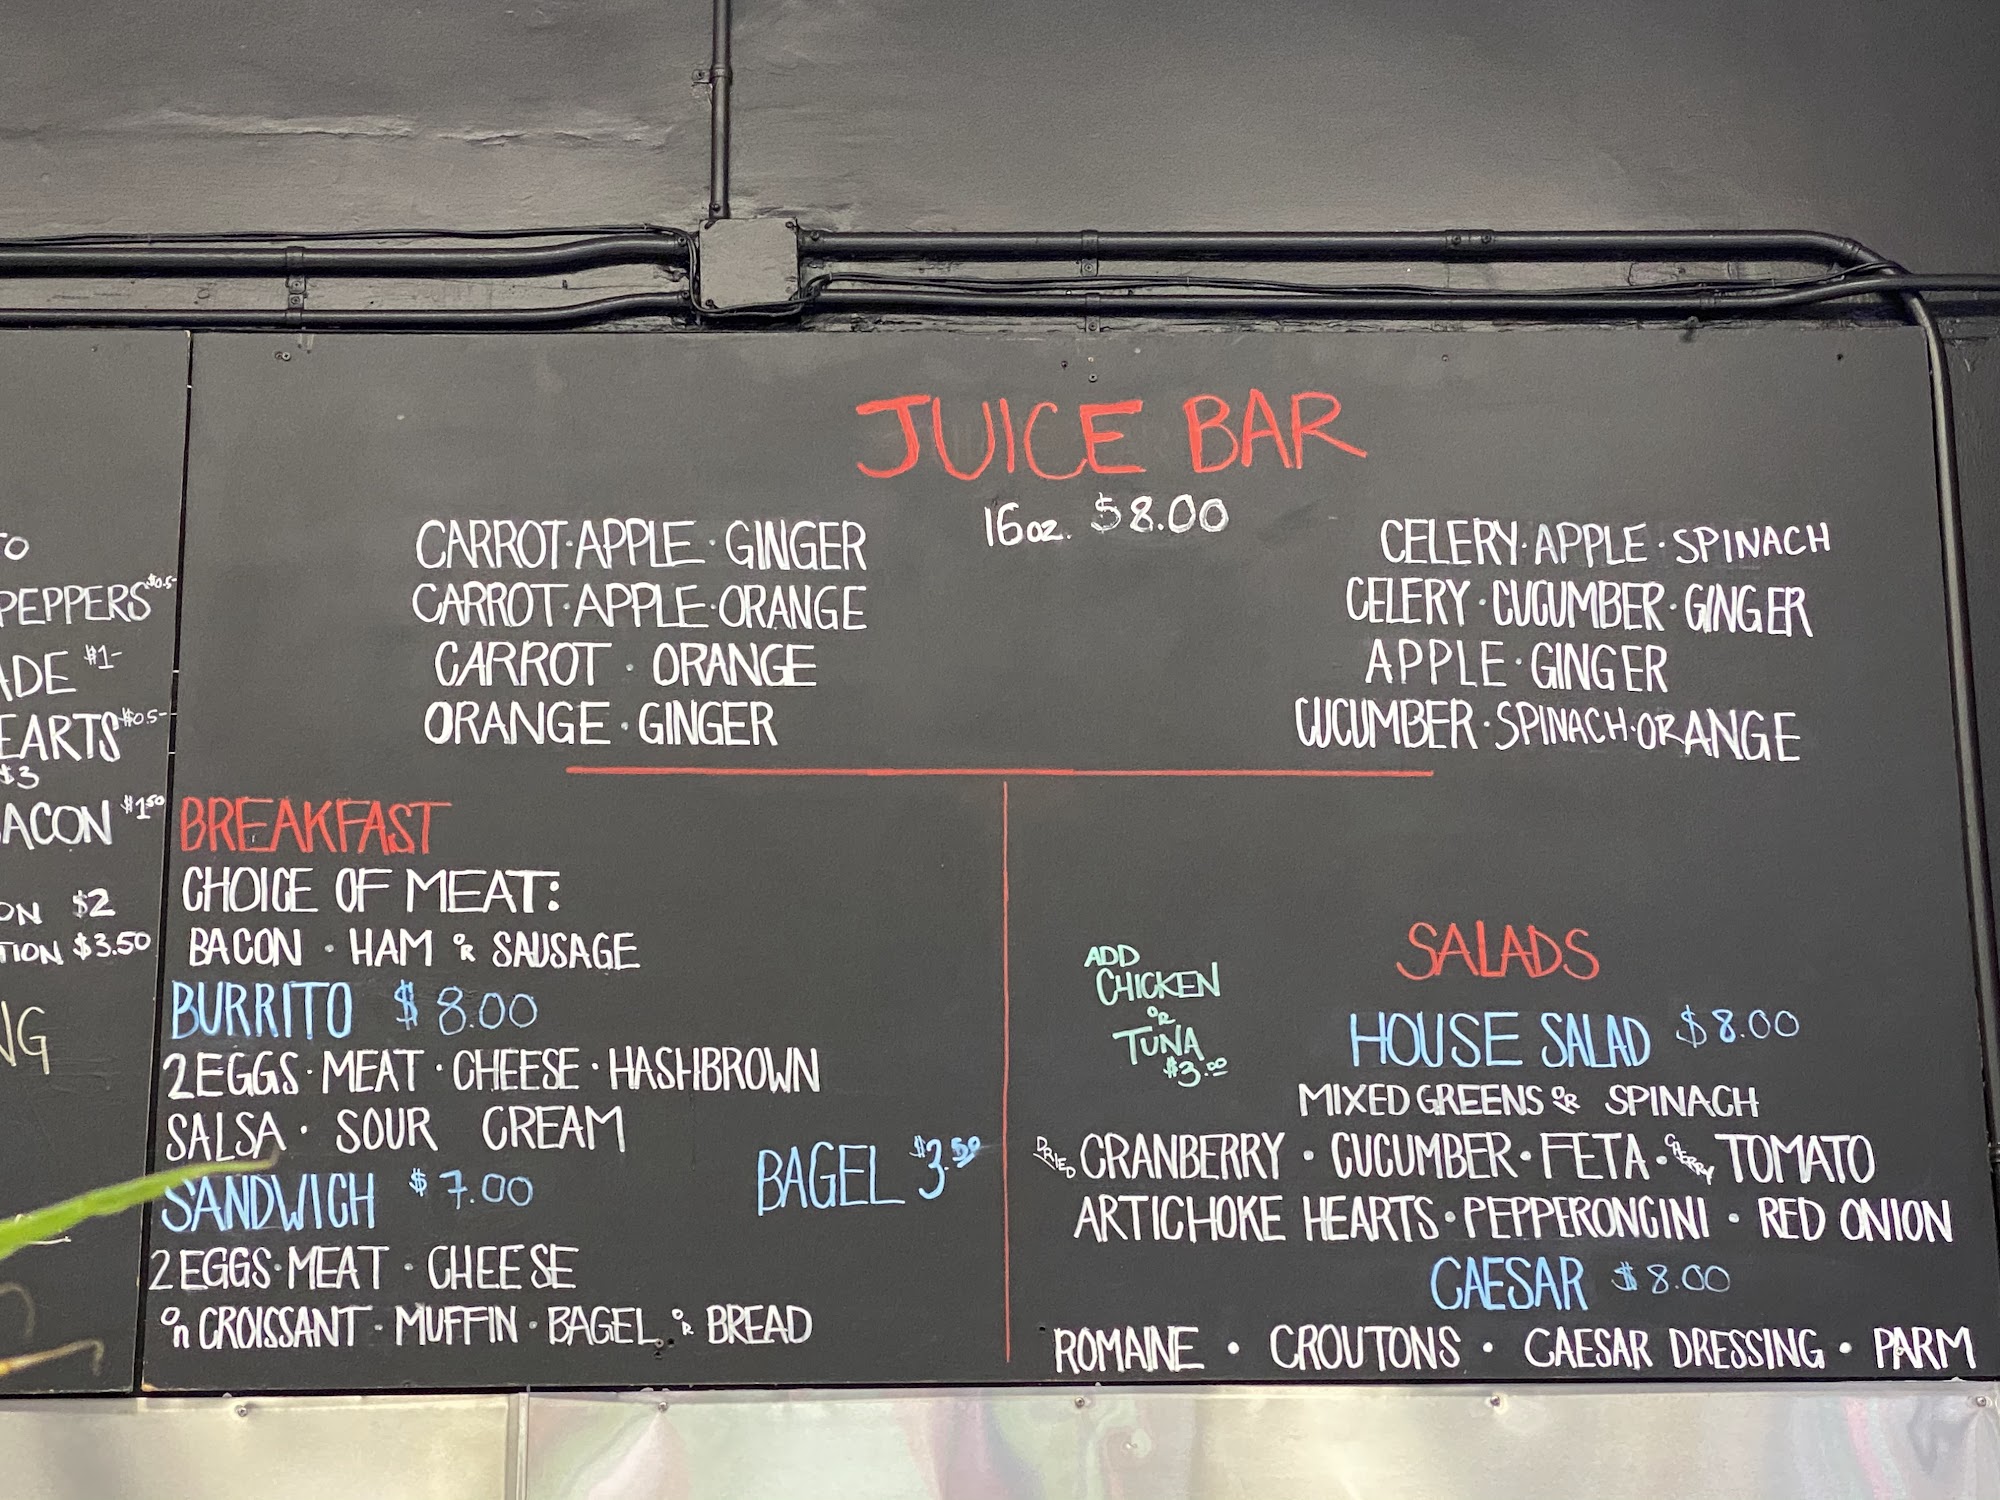 TO
PEPPERS $0.5-
ADE $1-
EARTS $0.5-
$3
ACON $1.50
ON $2
TION $3.50
NG
JUICE BAR
16oz. $8.00
CARROT·APPLE·GINGER
CARROT·APPLE·ORANGE
CARROT · ORANGE
ORANGE · GINGER
CELERY·APPLE·SPINACH
CELERY·CUCUMBER·GINGER
APPLE·GINGER
CUCUMBER·SPINACH·ORANGE
BREAKFAST
CHOICE OF MEAT:
BACON · HAM OR SAUSAGE
BURRITO $8.00
2 EGGS·MEAT·CHEESE·HASHBROWN
SALSA· SOUR CREAM
SANDWICH $7.00
2 EGGS·MEAT·CHEESE
on CROISSANT·MUFFIN·BAGEL OR BREAD
BAGEL $3.50
SALADS
ADD
CHICKEN
OR
TUNA
$3.00
HOUSE SALAD $8.00
MIXED GREENS OR SPINACH
DRIED CRANBERRY · CUCUMBER · FETA · CHERRY TOMATO
ARTICHOKE HEARTS·PEPPERONCINI · RED ONION
CAESAR $8.00
ROMAINE · CROUTONS · CAESAR DRESSING · PARM